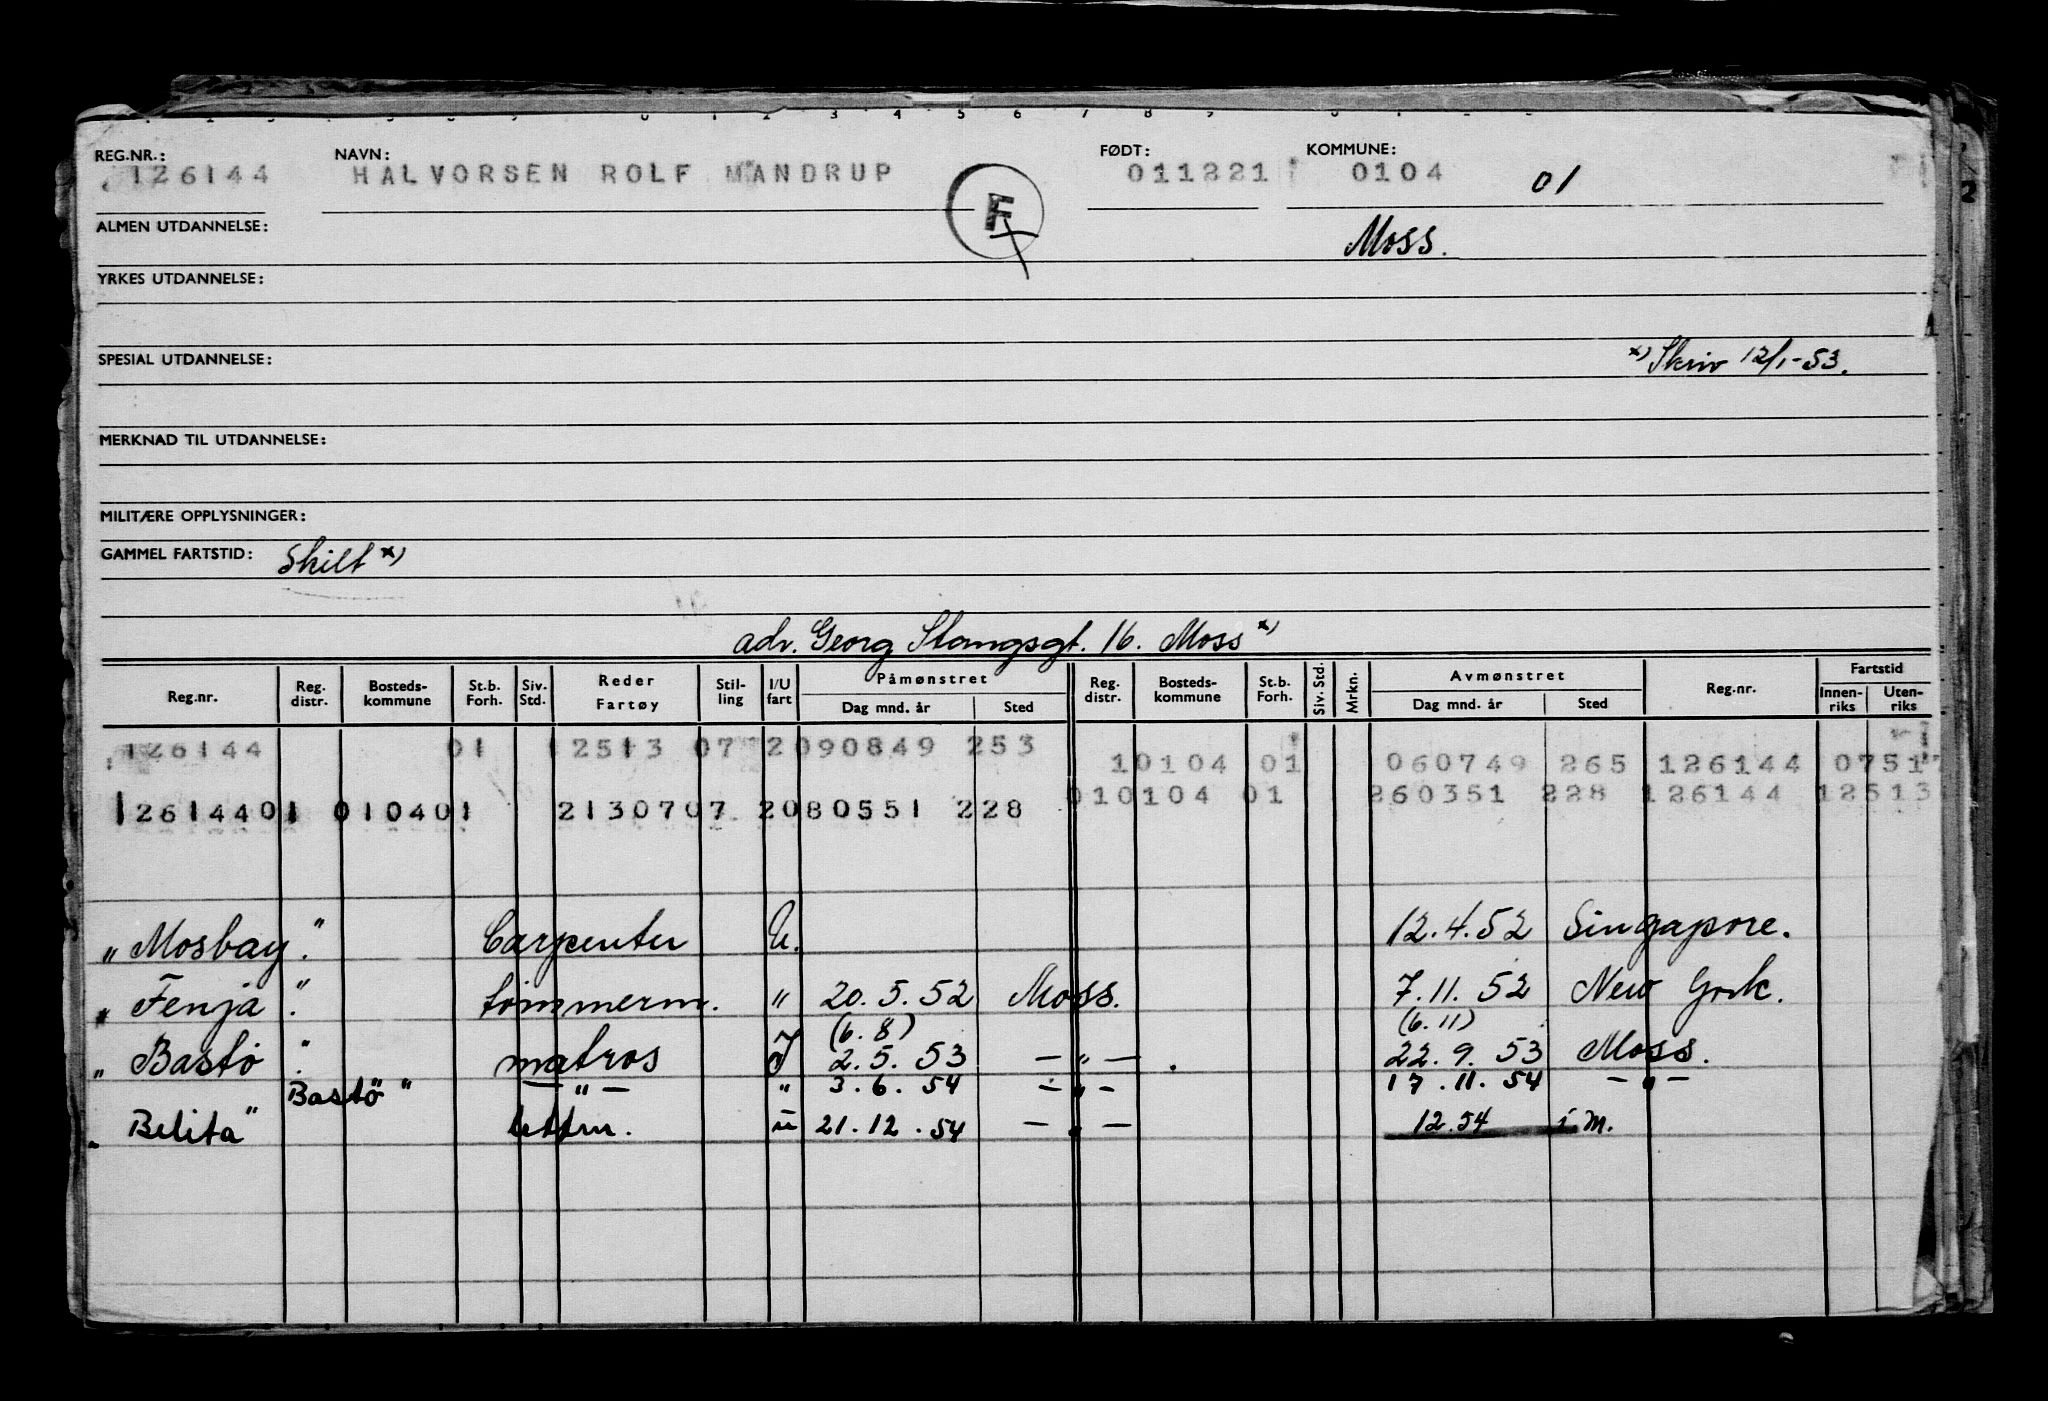 REG.NR.: 126144 NAVN: HALVORSEN ROLF MANDRUP FØDT: 011221 KOMMUNE: 0104 01
F
ALMEN UTDANNELSE: Moss.
YRKES UTDANNELSE:
SPESIAL UTDANNELSE: x) Skriv 12/1-53.
MERKNAD TIL UTDANNELSE:
MILITÆRE OPPLYSNINGER:
GAMMEL FARTSTID: Skilt x)
adr. Georg Stangsgt. 16. Moss x)
Reg.nr. Reg. distr. Bosteds-kommune St.b. Forh. Siv. Std. Reder Fartøy Stil-ling I/U fart Påmønstret Dag mnd. år Sted Reg. distr. Bosteds-kommune St.b. Forh. Siv. Std. Mrkn. Avmønstret Dag mnd. år Sted Reg.nr. Fartstid Innen-riks Uten-riks
126144 01 12513 07 2090849 253
10104 01 060749 265 126144 07517
010104 01 260351 228 126144 12513
126144 01 010401 2130707 2080551 228
„Mosbay". Carpenter U. 12.4.52 Singapore.
„Fenja". tømmerm. " 20.5.52 Moss. 7.11.52 New York.
(6.8) (6.11)
„Bastø". matros I 2.5.53 — " —. 22.9.53 Moss.
Bastö" — " — " 3.6.54 — " — 17.11.54 — " —
„Belita" lettm. u 21.12.54 — " — 12.54 i M.